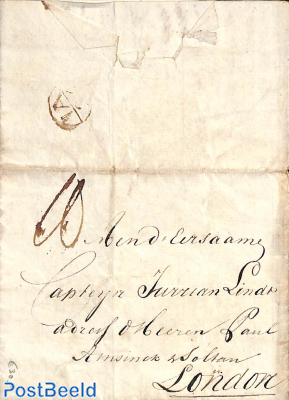 10
Aen d'Eersaame
Capteyn Jurriaan Lindt
adres d'Heeren Paul
Amsinck & Soltau
in
London
PostBeeld